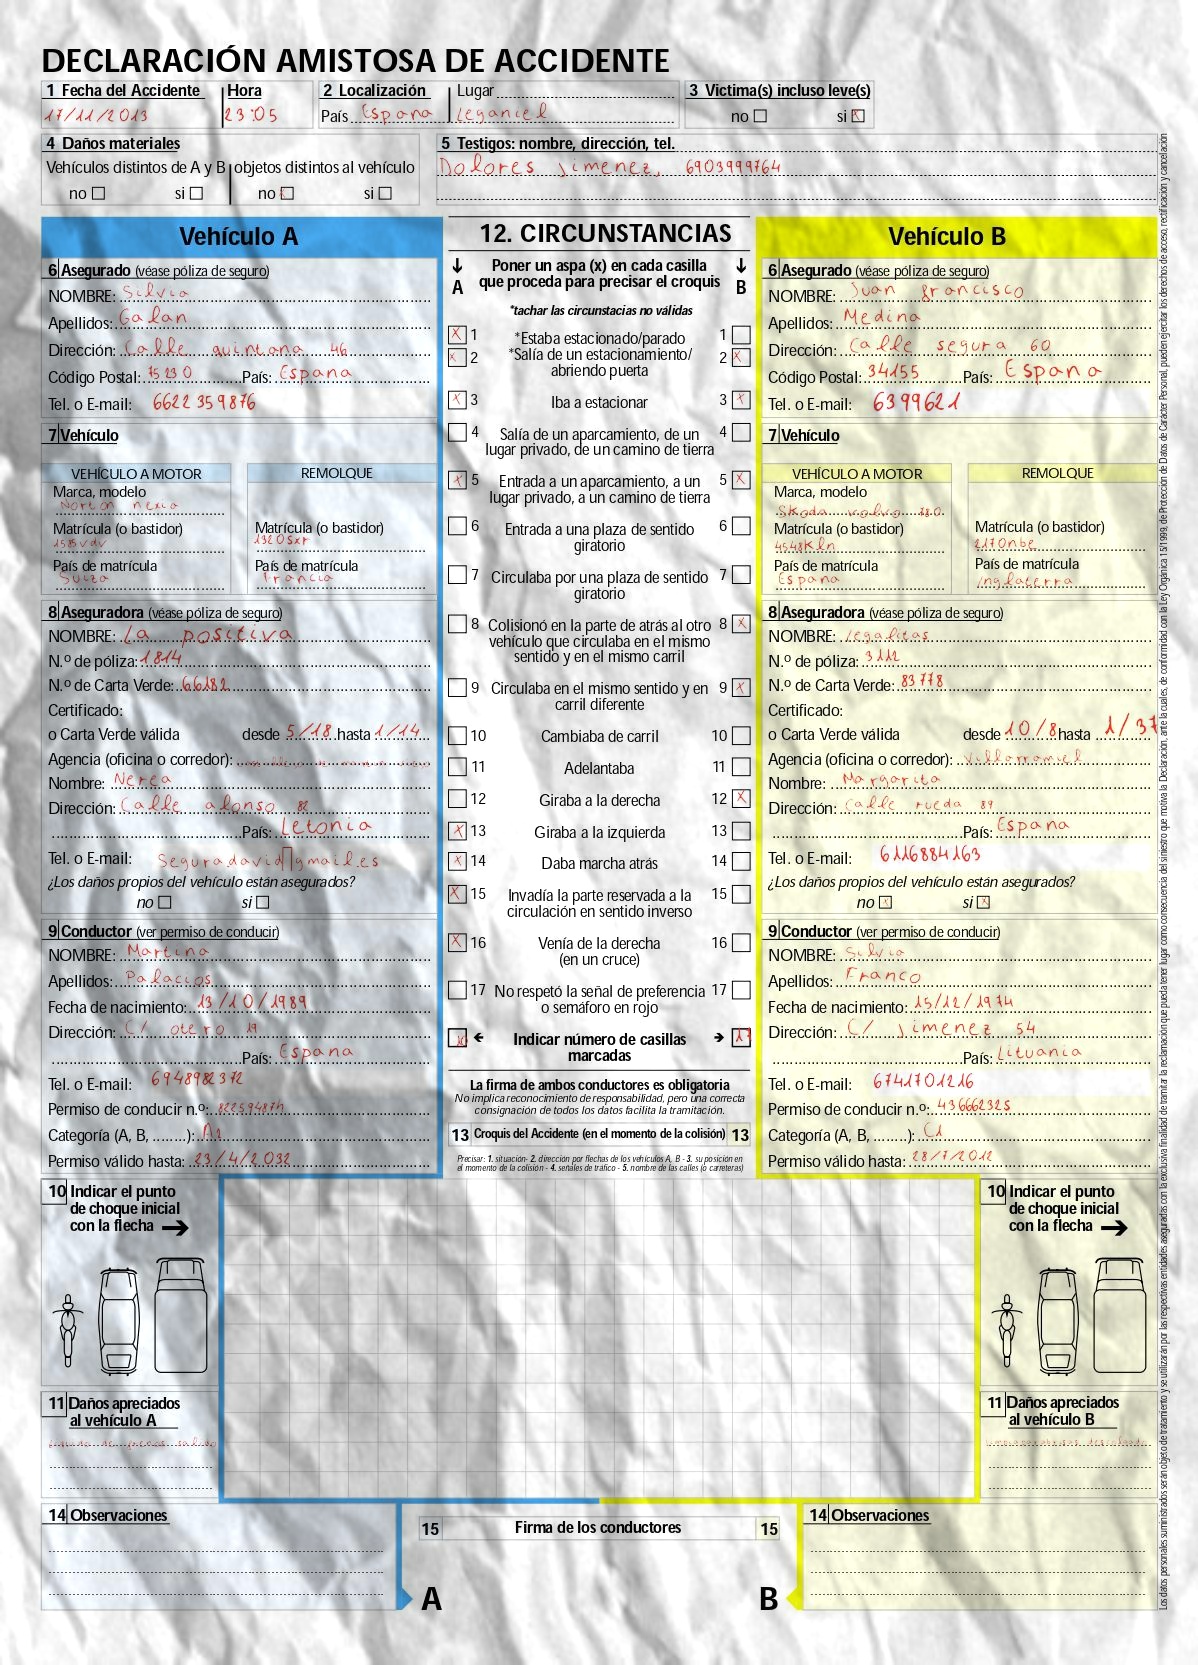 DECLARACIÓN AMISTOSA DE ACCIDENTE
1 Fecha del Accidente Hora
17/11/2013 23:05
2 Localización Lugar
País Espana Leganiel
3 Victima(s) incluso leve(s)
no si X
4 Daños materiales
Vehículos distintos de A y B objetos distintos al vehículo
no si no si
5 Testigos: nombre, dirección, tel.
Dolores Jimenez, 6903999764
Vehículo A
6 Asegurado (véase póliza de seguro)
NOMBRE: Silvia
Apellidos: Galan
Dirección: Calle quintana 46
Código Postal: 75230 País: Espana
Tel. o E-mail: 6622359876
7 Vehículo
VEHÍCULO A MOTOR REMOLQUE
Marca, modelo
Norton nexia
Matrícula (o bastidor) Matrícula (o bastidor)
1585vdv 1320sxr
País de matrícula País de matrícula
Suiza Francia
8 Aseguradora (véase póliza de seguro)
NOMBRE: La positiva
N.º de póliza: 1814
N.º de Carta Verde: 66182
Certificado:
o Carta Verde válida desde 5/18 hasta 1/14
Agencia (oficina o corredor):
Nombre: Nerea
Dirección: Calle alonso 82
País: Letonia
Tel. o E-mail: Seguradavid gmail.es
¿Los daños propios del vehículo están asegurados?
no si
9 Conductor (ver permiso de conducir)
NOMBRE: Martina
Apellidos: Palacios
Fecha de nacimiento: 13/10/1989
Dirección: C/ otero 19
País: Espana
Tel. o E-mail: 6948982372
Permiso de conducir n.º: 82259487h
Categoría (A, B, ........): A2
Permiso válido hasta: 23/4/2032
12. CIRCUNSTANCIAS
A B
Poner un aspa (x) en cada casilla
que proceda para precisar el croquis
*tachar las circunstacias no válidas
X 1 *Estaba estacionado/parado 1
X 2 *Salía de un estacionamiento/ 2 X
abriendo puerta
X 3 Iba a estacionar 3 X
4 Salía de un aparcamiento, de un 4
lugar privado, de un camino de tierra
X 5 Entrada a un aparcamiento, a un 5 X
lugar privado, a un camino de tierra
6 Entrada a una plaza de sentido 6
giratorio
7 Circulaba por una plaza de sentido 7
giratorio
8 Colisionó en la parte de atrás al otro 8 X
vehículo que circulaba en el mismo
sentido y en el mismo carril
9 Circulaba en el mismo sentido y en 9 X
carril diferente
10 Cambiaba de carril 10
11 Adelantaba 11
12 Giraba a la derecha 12 X
X 13 Giraba a la izquierda 13
X 14 Daba marcha atrás 14
X 15 Invadía la parte reservada a la 15
circulación en sentido inverso
X 16 Venía de la derecha 16
(en un cruce)
17 No respetó la señal de preferencia 17
o semáforo en rojo
Indicar número de casillas 17
marcadas
La firma de ambos conductores es obligatoria
No implica reconocimiento de responsabilidad, pero una correcta
consignación de todos los datos facilita la tramitación.
13 Croquis del Accidente (en el momento de la colisión) 13
Precisar: 1. situación- 2. dirección por flechas de los vehículos A, B - 3. su posición en
el momento de la colisión - 4. señales de tráfico - 5. nombre de las calles (o carreteras)
Vehículo B
6 Asegurado (véase póliza de seguro)
NOMBRE: Juan francisco
Apellidos: Medina
Dirección: Calle segura 60
Código Postal: 34155 País: Espana
Tel. o E-mail: 6399621
7 Vehículo
VEHÍCULO A MOTOR REMOLQUE
Marca, modelo
Skoda volvo
Matrícula (o bastidor) Matrícula (o bastidor)
4548kln 2170nbe
País de matrícula País de matrícula
Espana Inglaterra
8 Aseguradora (véase póliza de seguro)
NOMBRE: Legalitas
N.º de póliza: 3112
N.º de Carta Verde: 83778
Certificado:
o Carta Verde válida desde 10/8 hasta 1/37
Agencia (oficina o corredor): Villarramiel
Nombre: Margarita
Dirección: Calle rueda 89
País: Espana
Tel. o E-mail: 6116884163
¿Los daños propios del vehículo están asegurados?
no X si X
9 Conductor (ver permiso de conducir)
NOMBRE: Silvia
Apellidos: Franco
Fecha de nacimiento: 15/12/1974
Dirección: C/ Jimenez 54
País: Lituania
Tel. o E-mail: 6741701216
Permiso de conducir n.º: 43666232S
Categoría (A, B, ........): C1
Permiso válido hasta: 28/7/2012
10 Indicar el punto
de choque inicial
con la flecha
11 Daños apreciados
al vehículo A
10 Indicar el punto
de choque inicial
con la flecha
11 Daños apreciados
al vehículo B
14 Observaciones
15 Firma de los conductores 15
A B
14 Observaciones
Los datos personales suministrados serán objeto de tratamiento y se utilizarán por las respectivas entidades aseguradas con la exclusiva finalidad de tramitar la reclamación que pueda tener lugar como consecuencia del siniestro que motiva la Declaración, ante la cuales, de conformidad con la Ley Orgánica 15/1999, de Protección de Datos de Carácter Personal, pueden ejercitar los derechos de acceso, rectificación y cancelación